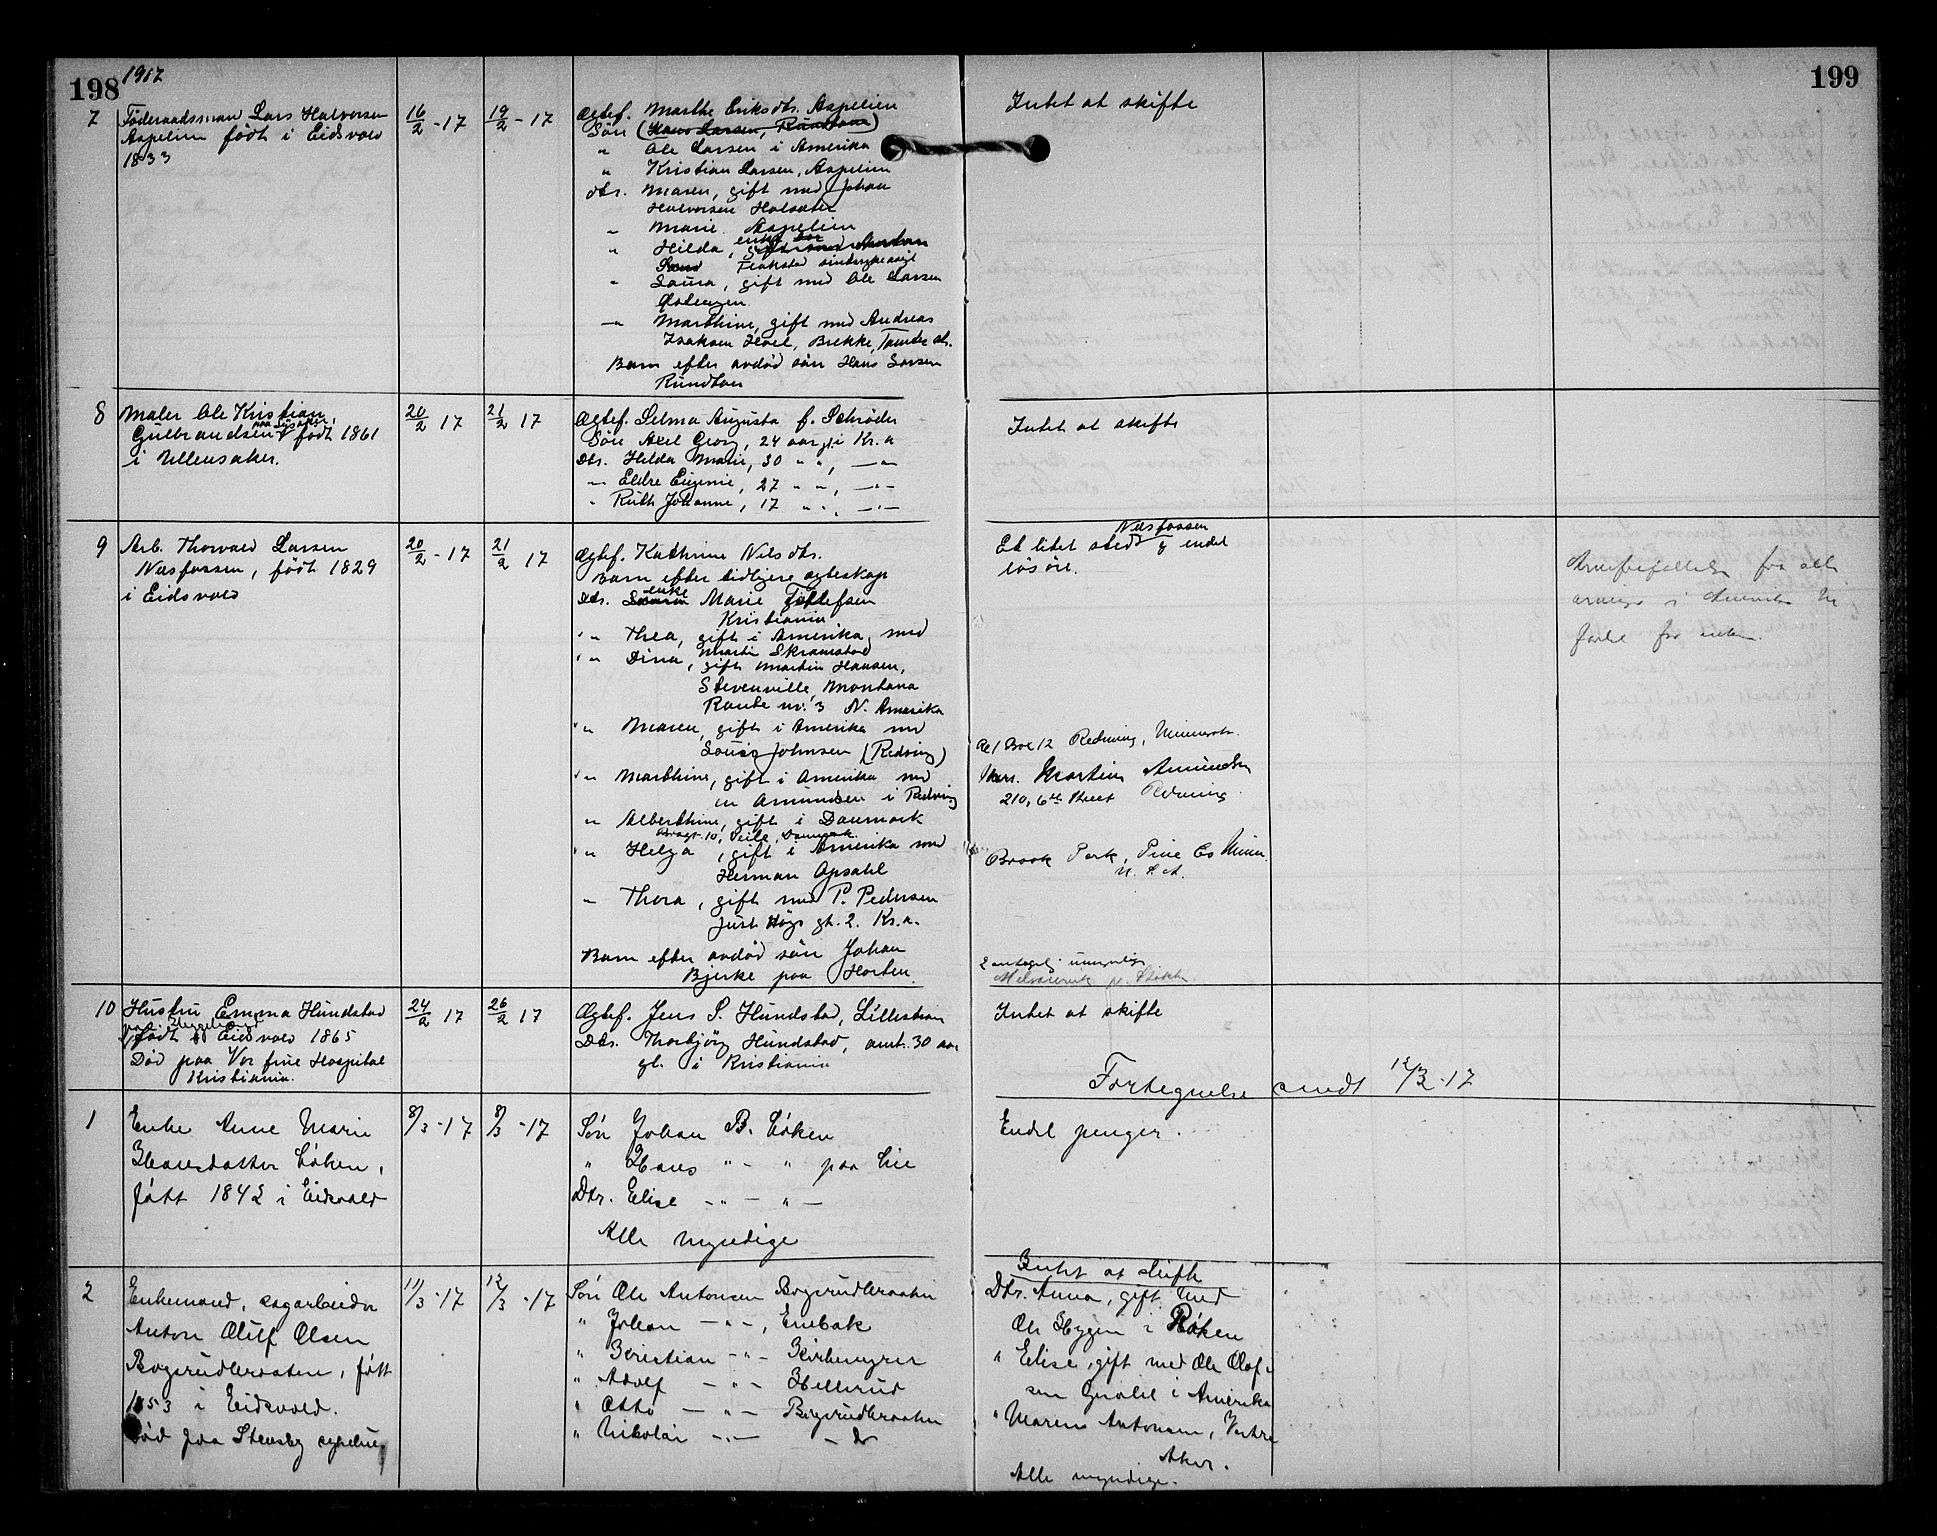 198 1917
199
7 Föderaadsmand Lars Halvorsen
Aspelien født i Eidsvold
1833
16/2 - 17
19/2 - 17
Ægtef. Marthe Eriksdtr. Aspelien
Søn (Hans Larsen, Rundtom)
" Ole Larsen i Amerika
" Kristian Larsen, Aspelien
dtr. Maren, gift med Johan
Halvorsen Holsæter
" Marie Aspelien
" Hilda, enke
Laura, gift med Ole Larsen
" Marthine, gift med Andreas
Isaksen Brekke,
Barn efter avdød søn Hans Larsen
Rundtom
Intet at skifte
8 Maler Ole Kristian
Gulbrandsen født 1861
i Ullensaker.
20/2 17
21/2 17
Ægtef. Selma Augusta f. Schrøder
Søn Axel Georg, 24 aar gl. i Kr.a
Dtr. Hilda Marie, 30 " ", — "
— Eldre Eugenie, 27 " ", — " —
" Ruth Johanne, 17 " ", — " —
Intet at skifte
9 Arb. Thorvald Larsen
Nesfossen, født 1829
i Eidsvold
20/2 - 17
21/2 17
Ægtef. Kathrine Nilsdtr.
Barn efter tidligere egteskap
Dtr. enke Marie
Kristiania
" Thea, gift i Amerika med
Martin Skramstad
" Dina, gift Martin Hansen,
Stevenville, Montana
Route nr. 3 N. Amerika
" Maren, gift i Amerika med
Louis Johnsen (Redwing)
" Marthine, gift i Amerika med
en Amundsen i Redwing
" Alberthine, gift i Danmark
10, Veile, Danmark
" Helga, gift i Amerika med
Herman Opsahl
" Thora, gift med P. Pedersen
Just Høgs gt. 2. Kr.a.
Barn efter avdød søn Johan
Bjerke paa Horten
Et litet sted Nesfossen & endel
løsøre.
R 1 Box 12 Redwing, Minnesota
Mrs. Martin Amundsen
210, 6th Street Redwing
Brook Park, Pine Co Minn.
U. S. A.
Arveforfaldelse fra alle
arvinger i Amerika
10 Hustru Emma Hundstad
født Eidsvold 1865
Død paa Vor frue Hospital
Kristiania.
24/2 17
26/2 17
Ægtef. Jens S. Hundstad, Lillestrøm
Dtr. Thorbjørg Hundstad, omt. 30 aar
gl. i Kristiania
Intet at skifte
Fortegnelse sendt 12/3-17
1 Enke Anne Marie
Hansdatter Løken,
født 1842 i Eidsvold
8/3 - 17
8/3 - 17
Søn Johan B. Løken
" Hans " - " paa Lie
Dtr. Elise - " - " -
Alle myndige
Endel penger.
2 Enkemand, sagarbeider
Anton Oluf Olsen
Bøgsrudbraaten, født
1853 i Eidsvold.
Død paa Stensby sykehus
11/3 - 17
12/3 - 17
Søn Ole Antonsen Bøgsrudbraaten
" Johan - " -, Enebak
" Kristian - " - Kirkemyrer
" Adolf - " - Hellerud
" Otto - " - Bøgsrudbraaten
" Nikolai - " - - do
Intet at skifte
Dtr. Anna, gift med
Ole Hygen i Røken
" Elise, gift med Ole Olof-
sen i Amerika
" Maren Antonsen, Vestre
Aker.
Alle myndige.